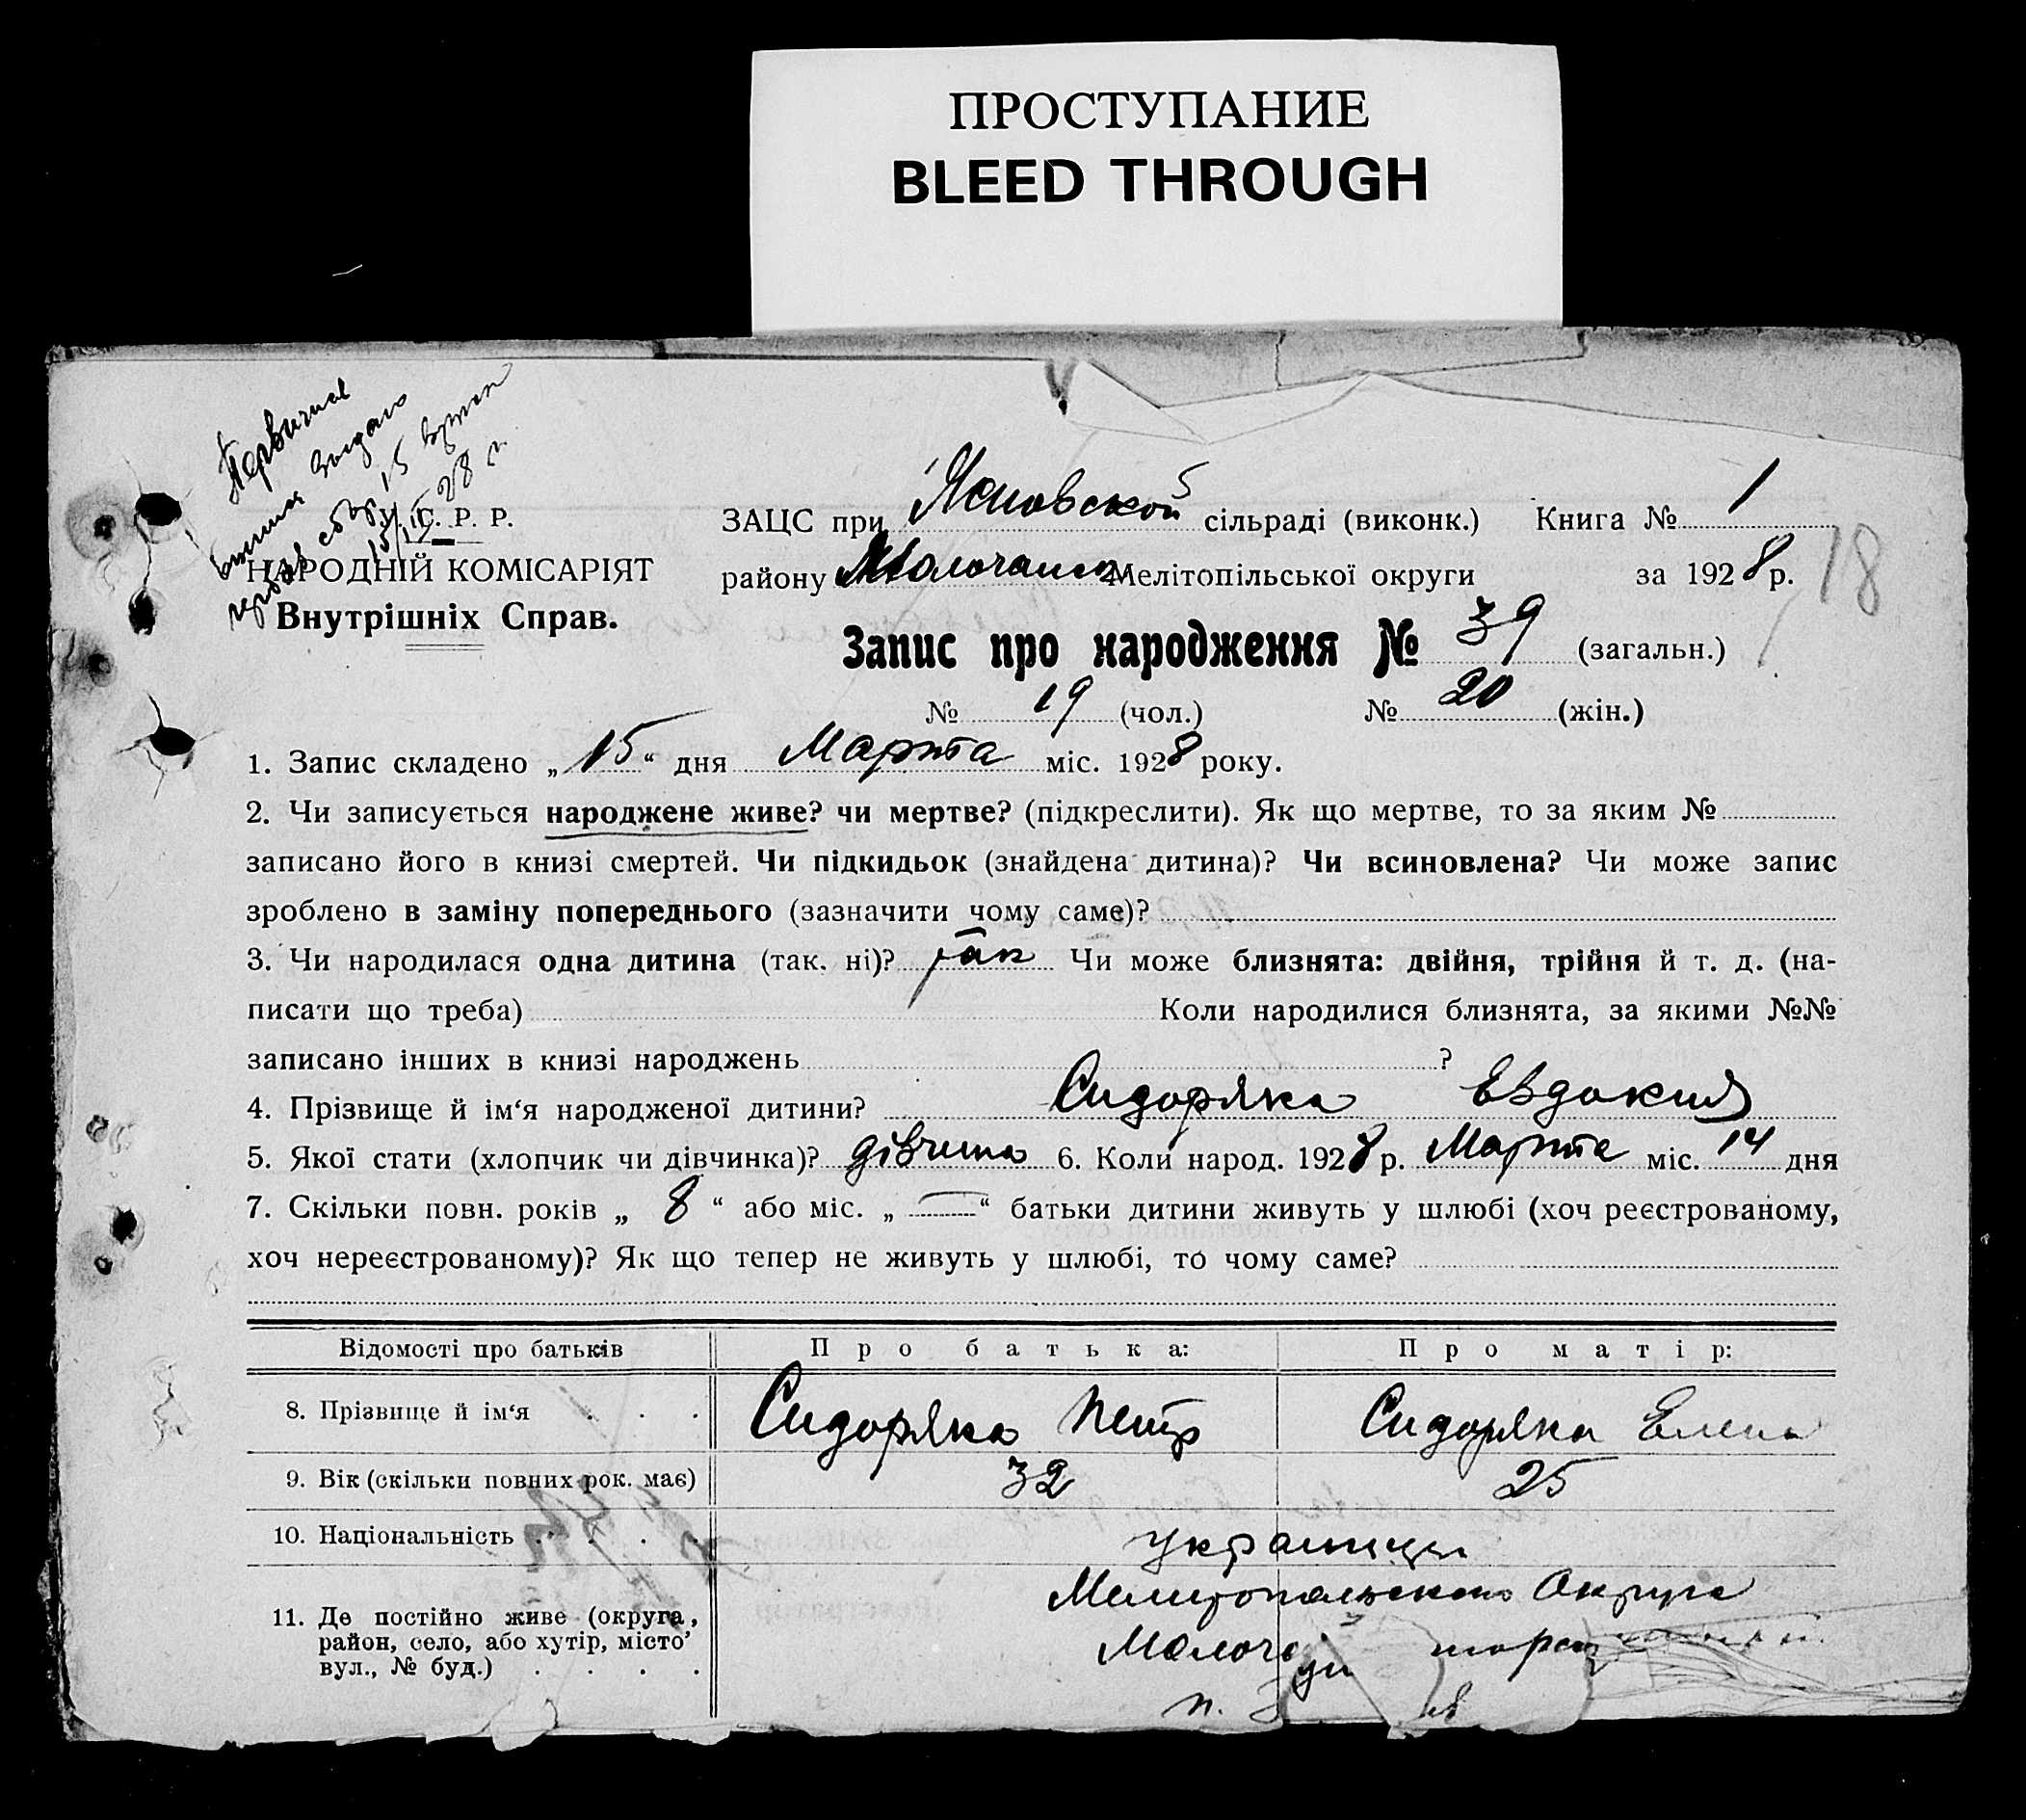 ПРОСТУПАНИЕ
BLEED THROUGH
Первичная
выдано
15
15/III 28 г.
У. С. Р. Р.
НАРОДНІЙ КОМІСАРІЯТ
Внутрішніх Справ.
ЗАЦС при Ясновской сільраді (виконк.) Книга № 1
району Молочанск Мелітопільської округи за 1928 р.
18
Запис про народження № 39 (загальн.)
№ 19 (чол.) № 20 (жін.)
1. Запис складено „15“ дня Марта міс. 1928 року.
2. Чи записується народжене живе? чи мертве? (підкреслити). Як що мертве, то за яким №
записано його в книзі смертей. Чи підкидьок (знайдена дитина)? Чи всиновлена? Чи може запис
зроблено в заміну попереднього (зазначити чому саме)?
3. Чи народилася одна дитина (так. ні)? так Чи може близнята: двійня, трійня й т. д. (на-
писати що треба) Коли народилися близнята, за якими №№
записано інших в книзі народжень ?
4. Прізвище й ім‘я народженої дитини? Сидоряка Евдокия
5. Якої стати (хлопчик чи дівчинка)? дівчина 6. Коли народ. 1928 р. Марта міс. 14 дня
7. Скільки повн. років „ 8 “ або міс. „ — “ батьки дитини живуть у шлюбі (хоч реєстрованому,
хоч нереєстрованому)? Як що тепер не живуть у шлюбі, то чому саме?
Відомості про батьків Про батька: Про матір:
8. Прізвище й ім‘я . . . Сидоряка Петр Сидоряка Елена
9. Вік (скільки повних рок. має) 32 25
10. Національність . . . . украинцы
11. Де постійно живе (округа, Мелитопольского Округа
район, село, або хутір, місто, Молоч
вул., № буд.) . . . . п.